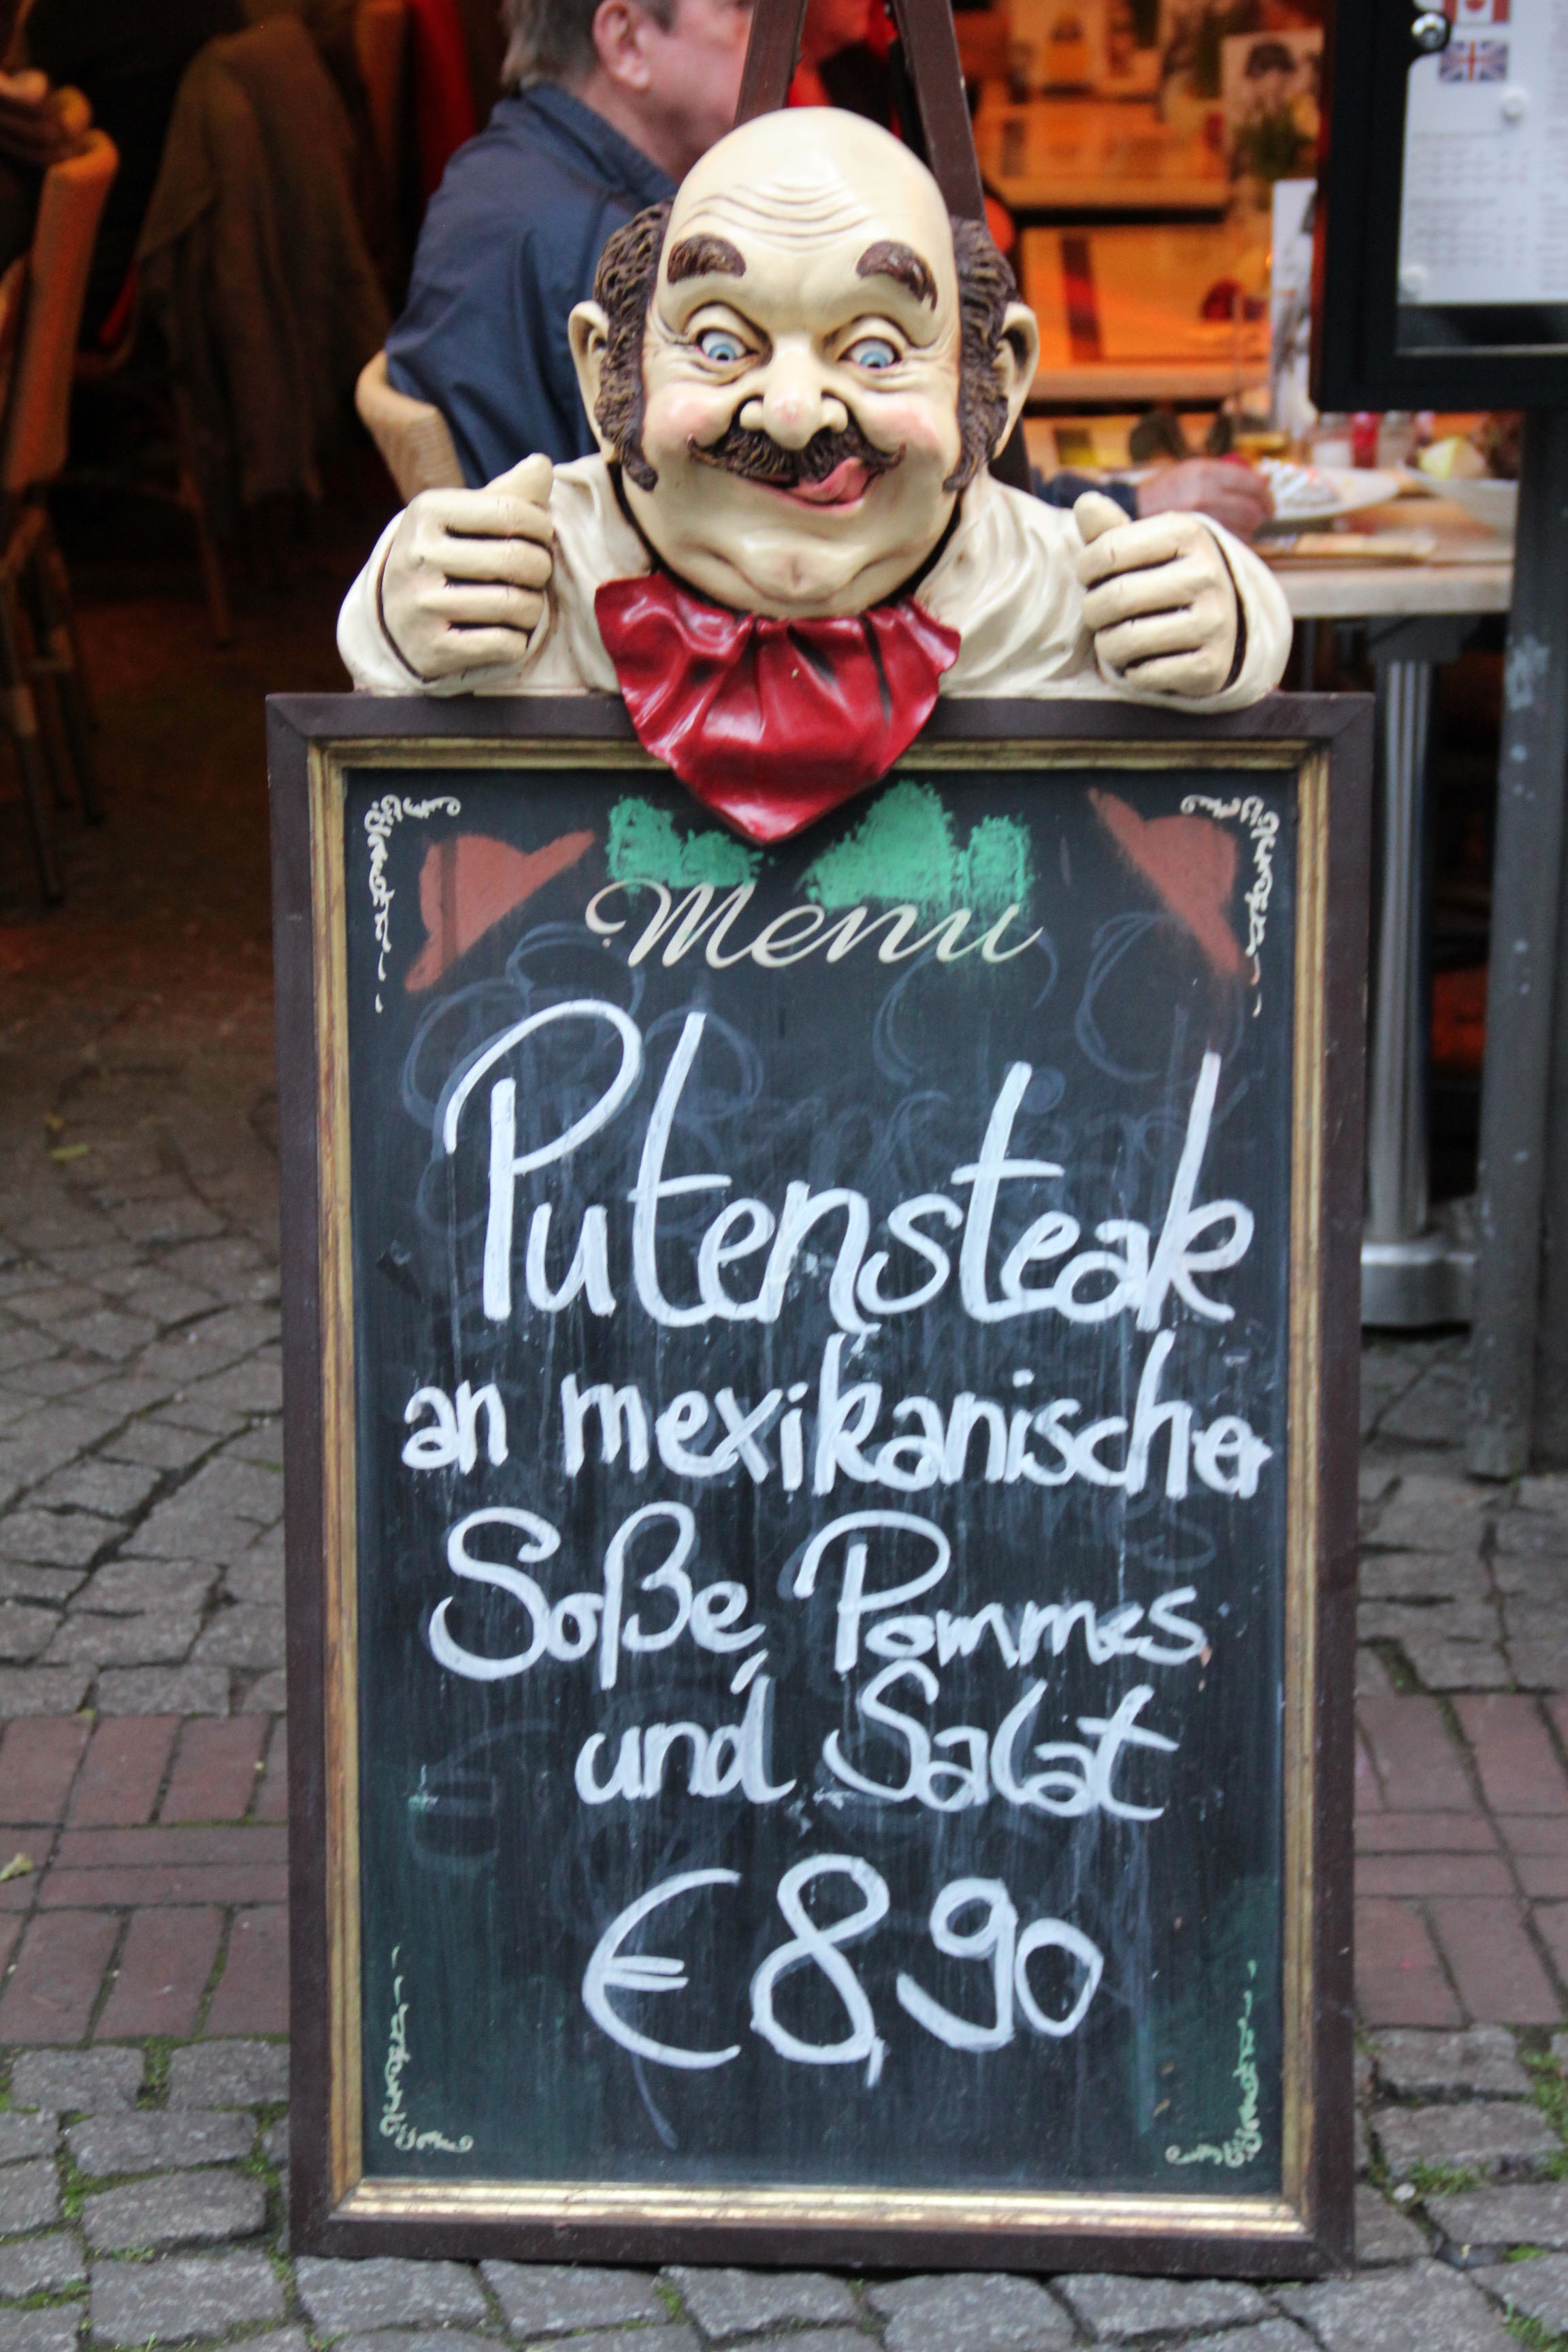 Menu
Putensteak
an mexikanischer
Soße, Pommes
und Salat
€ 8,90